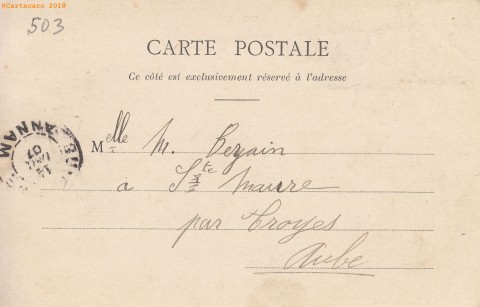 ©Cartacaro 2018
503
CARTE POSTALE
Ce côté est exclusivement réservé à l'adresse
Melle M. Bezain
à Ste Maure
par Troyes
Aube
ANNAM
07